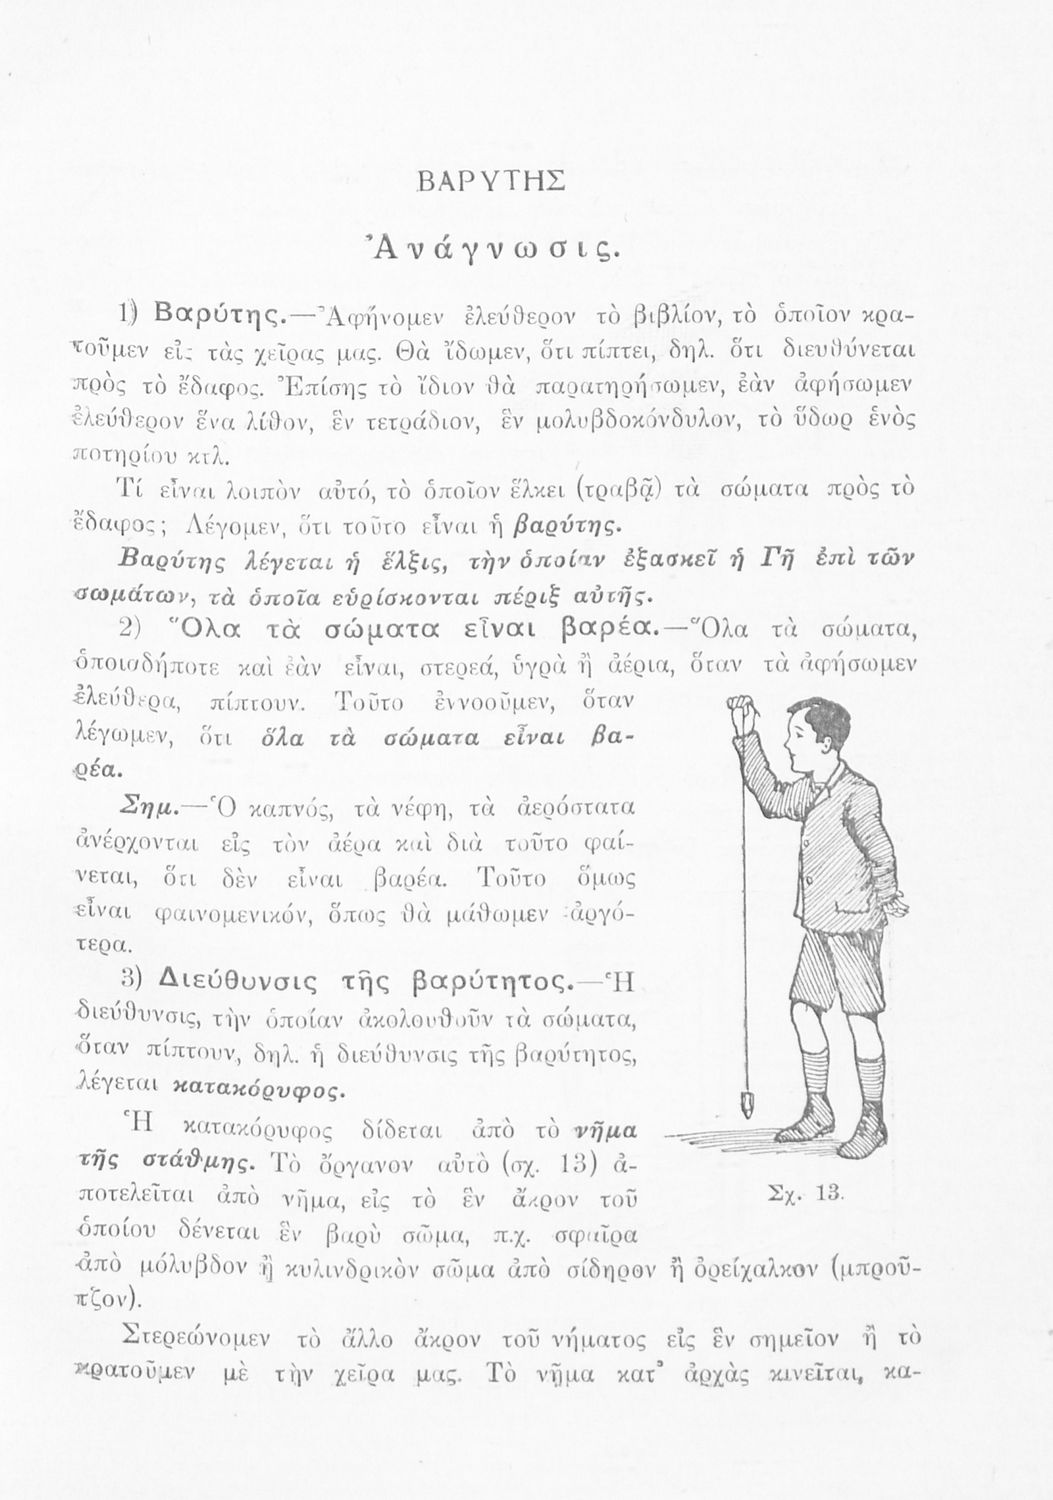 ΒΑΡΥΤΗΣ
Ἀνάγνωσις.
1) Βαρύτης.—Ἀφήνομεν ἐλεύθερον τὸ βιβλίον, τὸ ὁποῖον κρα-
τοῦμεν εἰς τὰς χεῖρας μας. Θὰ ἴδωμεν, ὅτι πίπτει, δηλ. ὅτι διευθύνεται
πρὸς τὸ ἔδαφος. Ἐπίσης τὸ ἴδιον θὰ παρατηρήσωμεν, ἐὰν ἀφήσωμεν
ἐλεύθερον ἕνα λίθον, ἓν τετράδιον, ἓν μολυβδοκόνδυλον, τὸ ὕδωρ ἑνὸς
ποτηρίου κτλ.
Τί εἶναι λοιπὸν αὐτό, τὸ ὁποῖον ἕλκει (τραβᾷ) τὰ σώματα πρὸς τὸ
ἔδαφος; Λέγομεν, ὅτι τοῦτο εἶναι ἡ βαρύτης.
Βαρύτης λέγεται ἡ ἕλξις, τὴν ὁποίαν ἐξασκεῖ ἡ Γῆ ἐπὶ τῶν
σωμάτων, τὰ ὁποῖα εὑρίσκονται πέριξ αὐτῆς.
2) Ὅλα τὰ σώματα εἶναι βαρέα.—Ὅλα τὰ σώματα,
ὁποιαδήποτε καὶ ἐὰν εἶναι, στερεά, ὑγρὰ ἢ ἀέρια, ὅταν τὰ ἀφήσωμεν
ἐλεύθερα, πίπτουν. Τοῦτο ἐννοοῦμεν, ὅταν
λέγωμεν, ὅτι ὅλα τὰ σώματα εἶναι βα-
ρέα.
Σημ.—Ὁ καπνός, τὰ νέφη, τὰ ἀερόστατα
ἀνέρχονται εἰς τὸν ἀέρα καὶ διὰ τοῦτο φαί-
νεται, ὅτι δὲν εἶναι βαρέα. Τοῦτο ὅμως
εἶναι φαινομενικόν, ὅπως θὰ μάθωμεν ἀργό-
τερα.
3) Διεύθυνσις τῆς βαρύτητος.—Ἡ
διεύθυνσις, τὴν ὁποίαν ἀκολουθοῦν τὰ σώματα,
ὅταν πίπτουν, δηλ. ἡ διεύθυνσις τῆς βαρύτητος,
λέγεται κατακόρυφος.
Ἡ κατακόρυφος δίδεται ἀπὸ τὸ νῆμα
τῆς στάθμης. Τὸ ὄργανον αὐτὸ (σχ. 13) ἀ-
ποτελεῖται ἀπὸ νῆμα, εἰς τὸ ἓν ἄκρον τοῦ
ὁποίου δένεται ἓν βαρὺ σῶμα, π.χ. σφαῖρα
ἀπὸ μόλυβδον ἢ κυλινδρικὸν σῶμα ἀπὸ σίδηρον ἢ ὀρείχαλκον (μπροῦ-
τζον).
Στερεώνομεν τὸ ἄλλο ἄκρον τοῦ νήματος εἰς ἓν σημεῖον ἢ τὸ
κρατοῦμεν μὲ τὴν χεῖρα μας. Τὸ νῆμα κατ' ἀρχὰς κινεῖται, κα-
Σχ. 13.